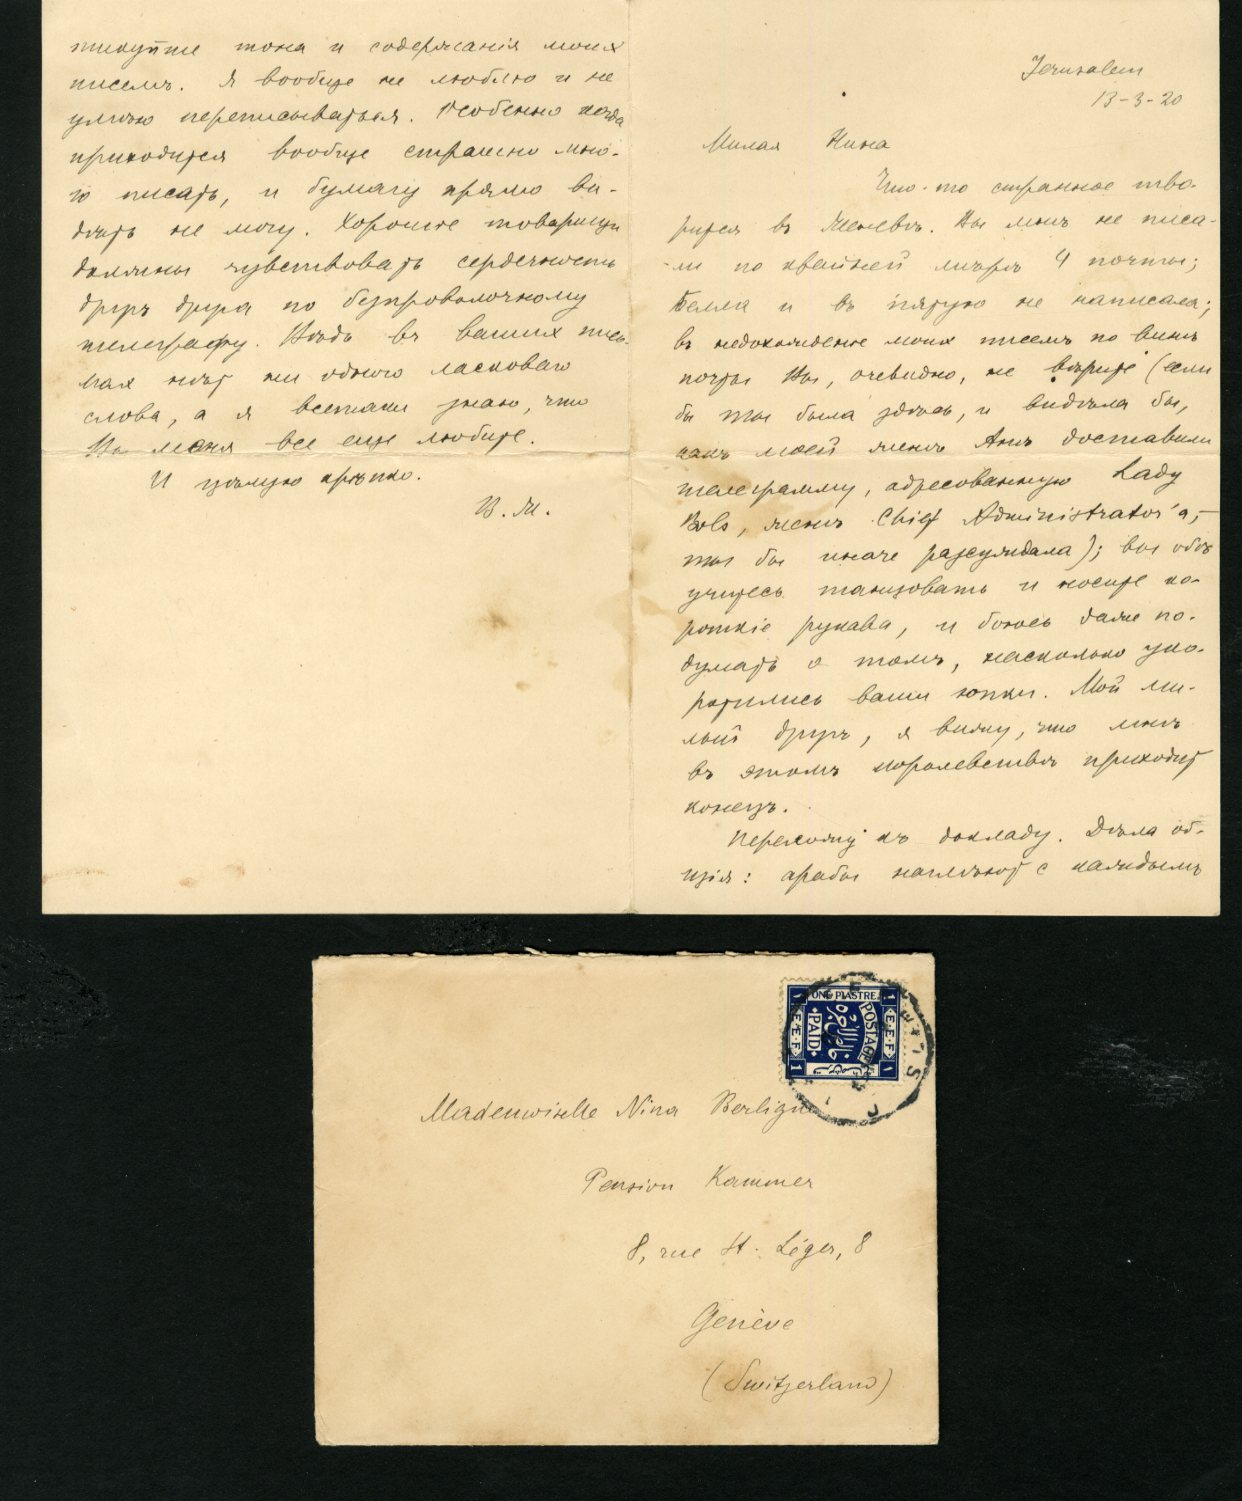 Jerusalem
13-3-20
Милая Нина
Что-то странное тво-
рится въ Женевѣ. Вы мнѣ не писа-
ли по крайней мѣрѣ 4 почты;
Белла и въ пятую не написала;
въ недохожденіе моихъ писемъ по винѣ
почты Вы, очевидно, не вѣрите (если
бы ты была здѣсь, и видѣла бы,
какъ моей женѣ Анѣ доставили
телеграмму, адресованную Lady
Bols, женѣ Chief Administrator'а,
ты бы иначе разсуждала); вы обѣ
учитесь танцовать и носите ко-
роткіе рукава, и боюсь даже по-
думать о томъ, насколько уко-
ротились ваши юпки. Мой ми-
лый другъ, я вижу, что мнѣ
въ этомъ королевствѣ приходит
конецъ.
Перехожу къ докладу. Дѣла об-
щія: арабы наглѣют с каждымъ
тона и содержанія моих
писемъ. Я вообще не люблю и не
умѣю переписываться. Особенно когда
приходится вообще страшно мно-
го писать, и бумагу прямо ви-
дѣть не могу. Хорошіе товарищи
должны чувствовать сердечность
другъ друга по безпроволочному
телеграфу. Вѣдь въ ваших пись-
мах нѣт ни одного ласковаго
слова, а я всетаки знаю, что
Вы меня все еще любите.
И цѣлую крѣпко.
В. Ж.
ONE PIASTRE
POSTAGE
PAID
E.E.F
E.E.F
1
1
1
1
Mademoiselle Nina Berligne
Pension Kammer
8, rue St. Léger, 8
Genève
(Switzerland)